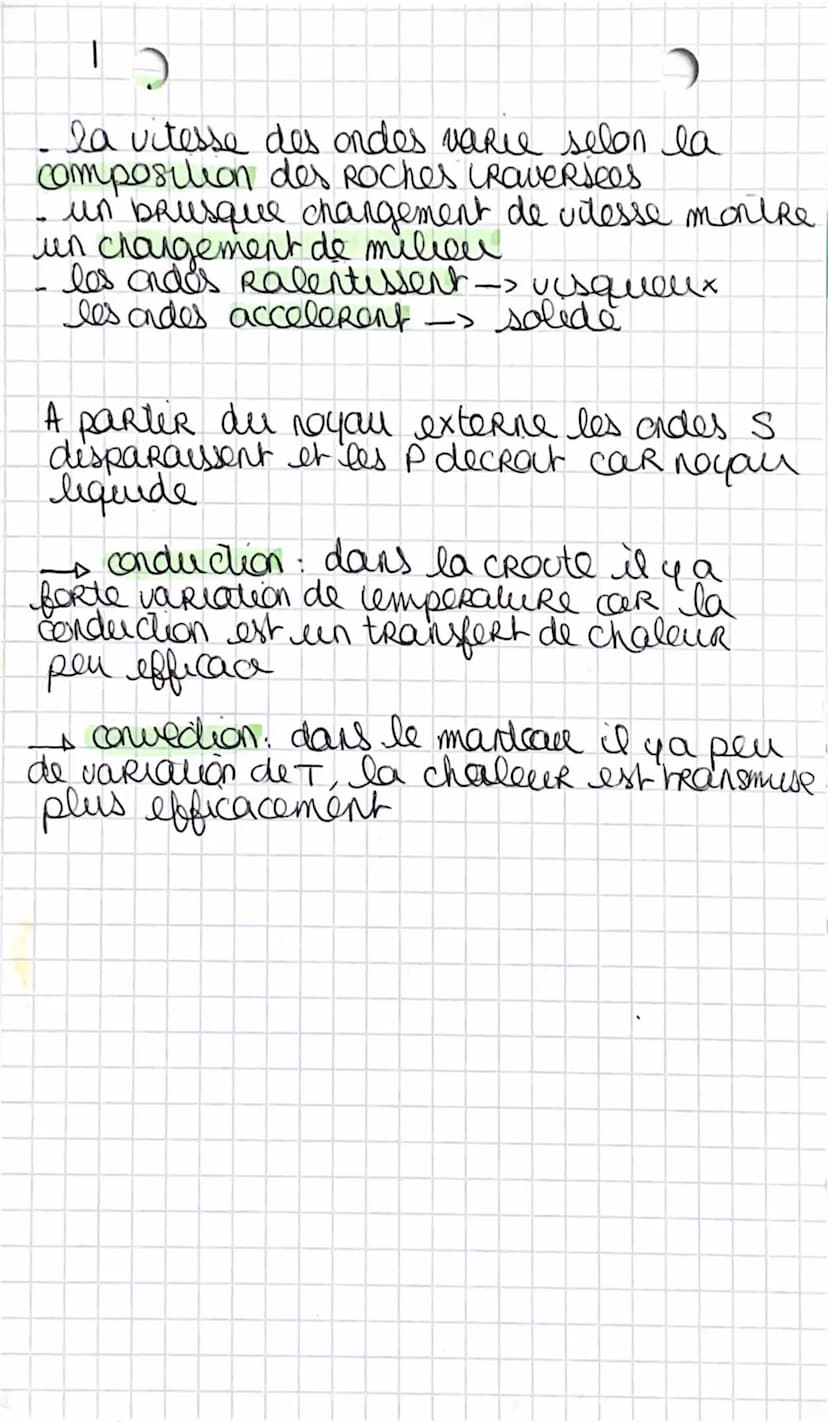 1
- la vitesse des ondes varie selon la
composition des roches traversees
- un brusque changement de vitesse montre
un changement de milieu
- les ondes ralentissent -> visqueux
les ondes accelerent -> solide
A partir du noyau externe les ondes S
disparaissent et les P decroit car noyau
liquide
→ conduction : dans la croute il y a
forte variation de temperature car la
conduction est un transfert de chaleur
peu efficace
→ convection : dans le manteau il y a peu
de variation de T, la chaleur est transmise
plus efficacement